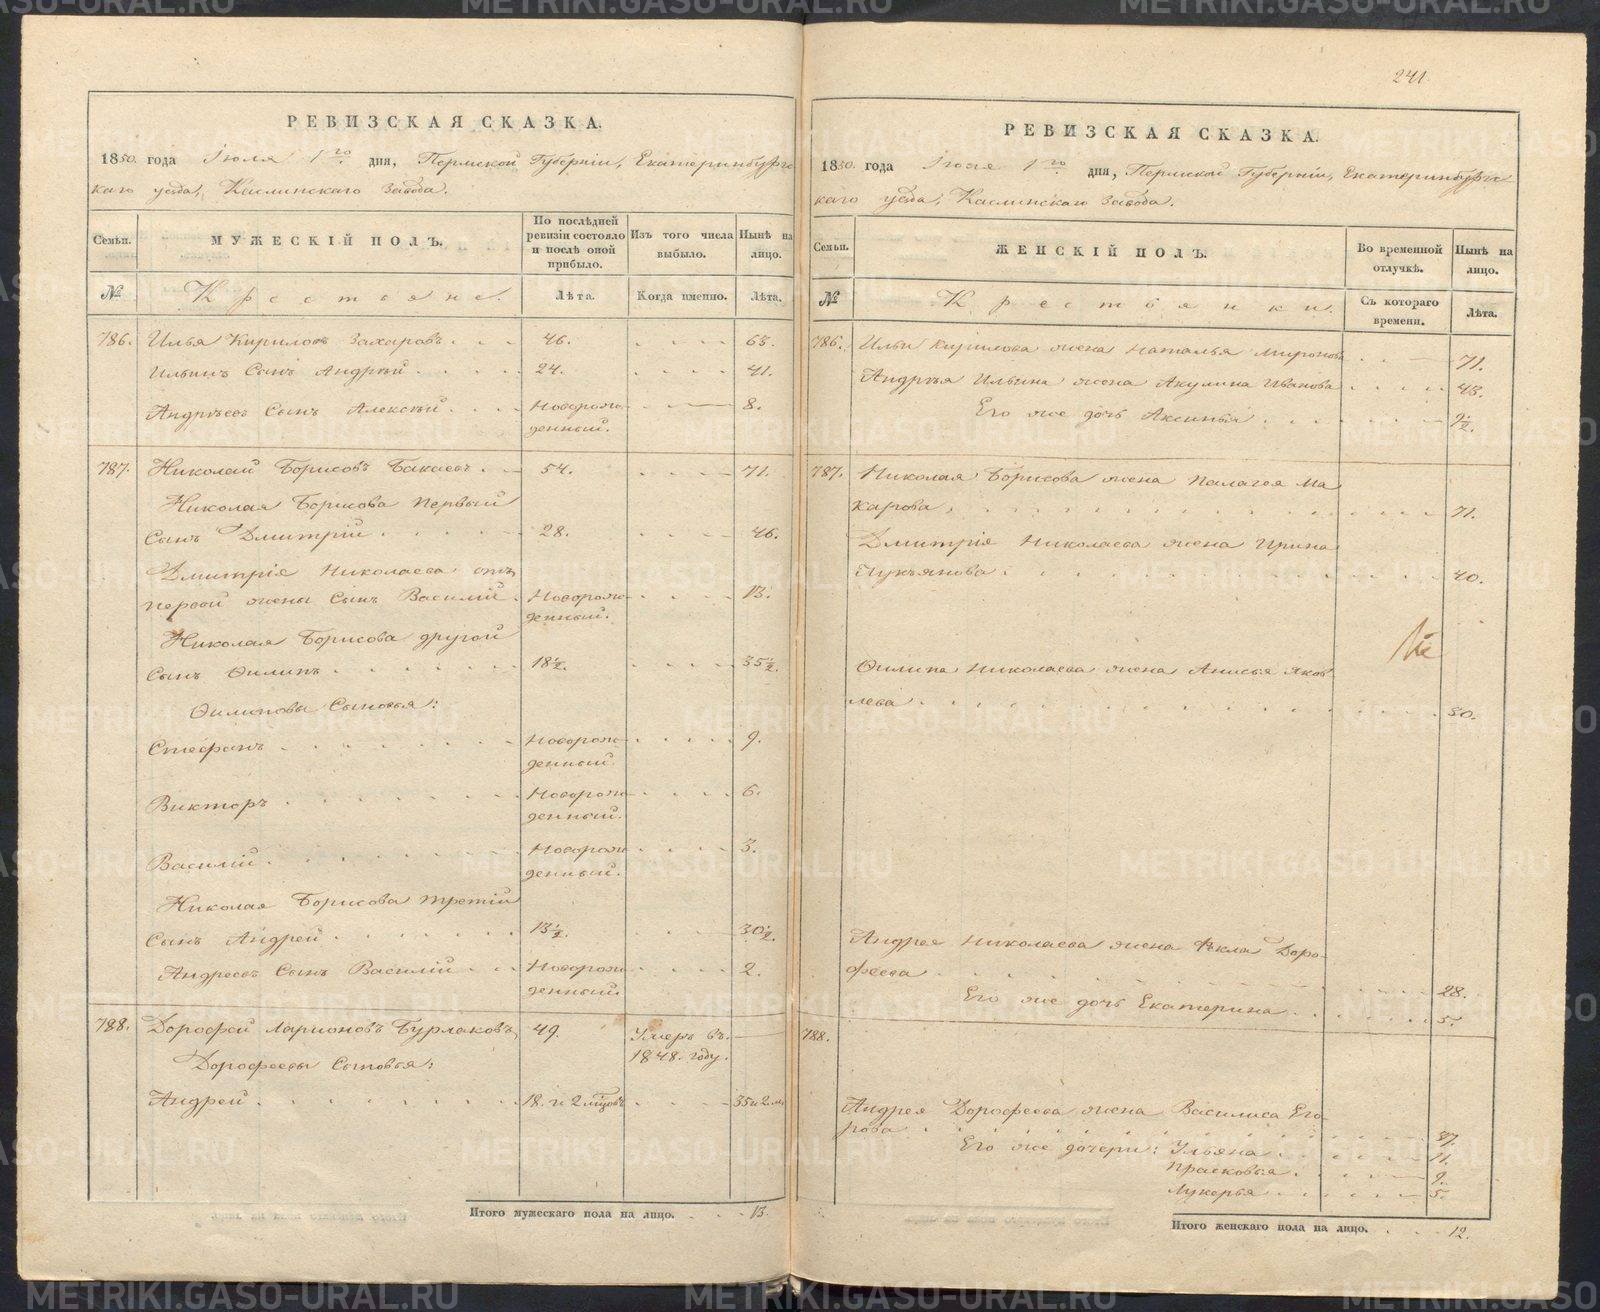 241.
РЕВИЗСКАЯ СКАЗКА.
1850. года Июля 1го дня, Пермской Губернiи, Екатеринбургс
каго уезда, Каслинскаго завода.
Семьи.
МУЖЕСКІЙ ПОЛЪ.
По послѣдней ревизіи состояло и послѣ оной прибыло.
Изъ того числа выбыло.
Нынѣ на лицо.
№
Крестьяне.
Лѣта.
Когда именно.
Лѣта.
786. Илья Кириловъ Захаровъ . . . 46. . . . . 63.
Ильинъ Сынъ Андрѣй . . . . . 24. . . . . 41.
Андрѣевъ Сынъ Алексѣй . . . Новорож- . . 8.
денный.
787. Николай Борисовъ Бакаевъ . . 54. . . . . 71.
Николая Борисова первый
Сынъ Дмитрій . . . . . . 28. . . . . 46.
Дмитрія Николаева отъ
первой жены Сынъ Василій . Новорож- . . . . 13.
денный.
Николая Борисова другой
Сынъ Филипъ . . . . . . . 18½. . . . . 35½.
Филиповы Сыновья:
Стефанъ . . . . . . . Новорож- . . . . 9.
денный.
Викторъ . . . . . . . Новорож- . . . . 6.
денный.
Василій . . . . . . . Новорож- . . . . 3.
денный.
Николая Борисова третій
Сынъ Андрей . . . . . . 13½. . . . . 30½.
Андреевъ Сынъ Василій . . . Новорож- . . . . 2.
денный
788. Дорофей Ларионовъ Бурлаковъ 49. Умеръ въ.
1848. году.
Дорофеевы Сыновья:
Андрей . . . . . . . . 18. и 2 мцовъ . . . . 35 и 2 м
Итого мужескаго пола на лицо. . . . 13.
РЕВИЗСКАЯ СКАЗКА.
1850. года Июля 1го дня, Пермской Губернiи, Екатеринбургс
каго уезда, Каслинскаго завода.
Семьи.
ЖЕНСКІЙ ПОЛЪ.
Во временной отлучкѣ.
Нынѣ на лицо.
№
Крестьянки.
Съ котораго времени.
Лѣта.
786. Ильи Кирилова жена Наталья Миронова . . 71.
Андрѣя Ильина жена Акулина Иванова . . . . 43.
Его же дочь Аксинья . . . . . . ½.
787. Николая Борисова жена Палагея Ма
карова . . . . . . . . . . . . 71.
Дмитрія Николаева жена Ирина
Лукьянова . . . . . . . . . . 40.
Филипа Николаева жена Анисья Яков
лева . . . . . . . . . . . 30.
Андрея Николаева жена Фекла Доро-
феева . . . . . . . . . . . 28.
Его же дочь Екатерина . . . . . . 5.
788.
Андрея Дорофеева жена Василиса Его
рова . . . . . . . . . . . 37.
Его же дочери: Ульяна . . . . . . 11.
Прасковья . . . . . . 9.
Лукерья . . . . . . 5.
Итого женскаго пола на лицо. . . . 12.
METRIKI.GASO-URAL.RU